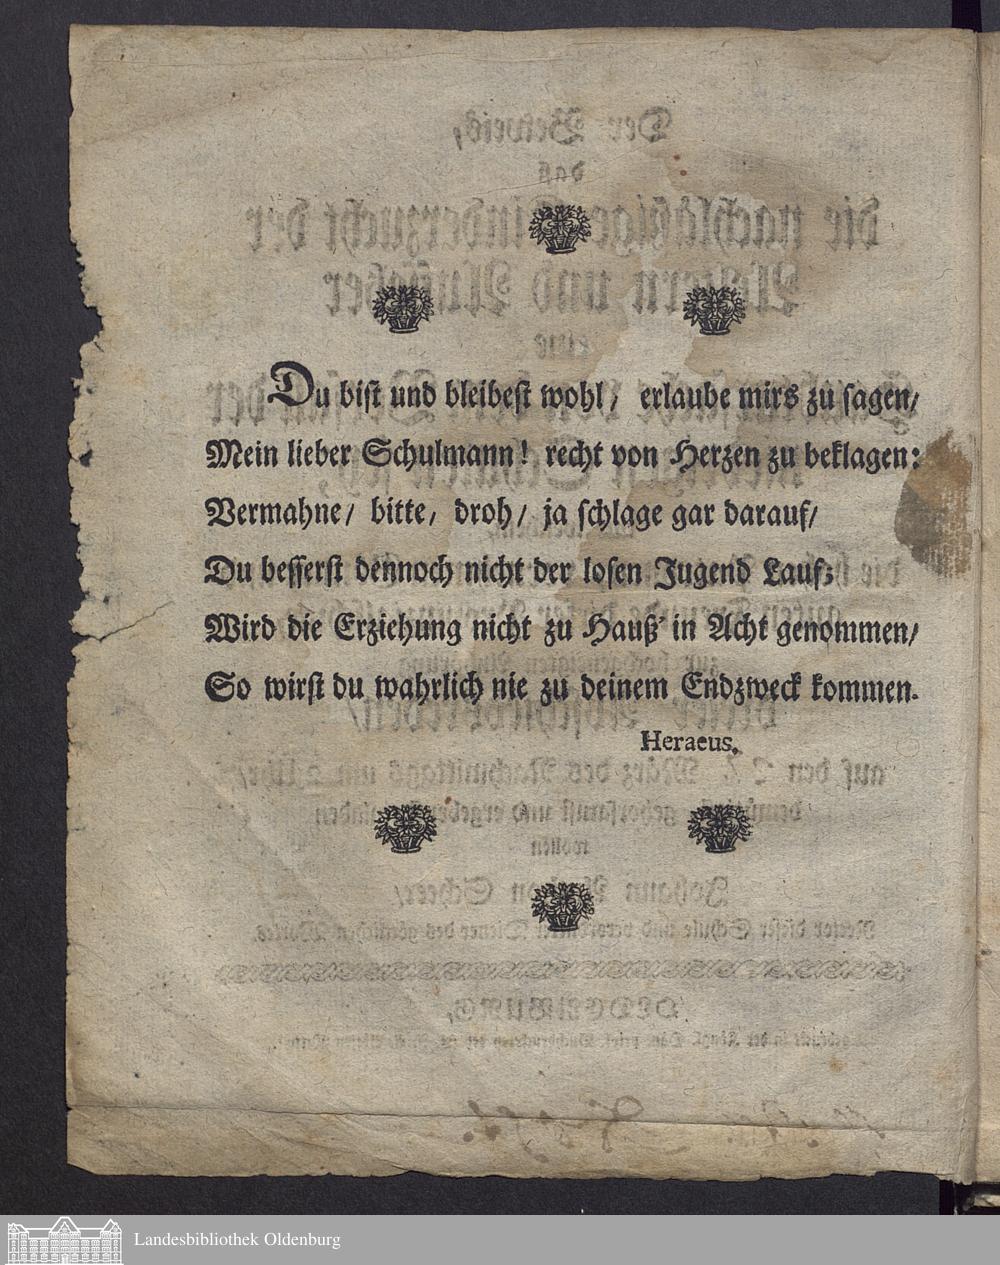 Du bist und bleibest wohl/ erlaube mirs zu sagen/
Mein lieber Schulmann! recht von Herzen zu beklagen:
Vermahne/ bitte/ droh/ ja schlage gar darauf/
Du besserst dennoch nicht der losen Jugend Lauf;
Wird die Erziehung nicht zu Hauß' in Acht genommen/
So wirst du wahrlich nie zu deinem Endzweck kommen.
Heraeus.
Landesbibliothek Oldenburg